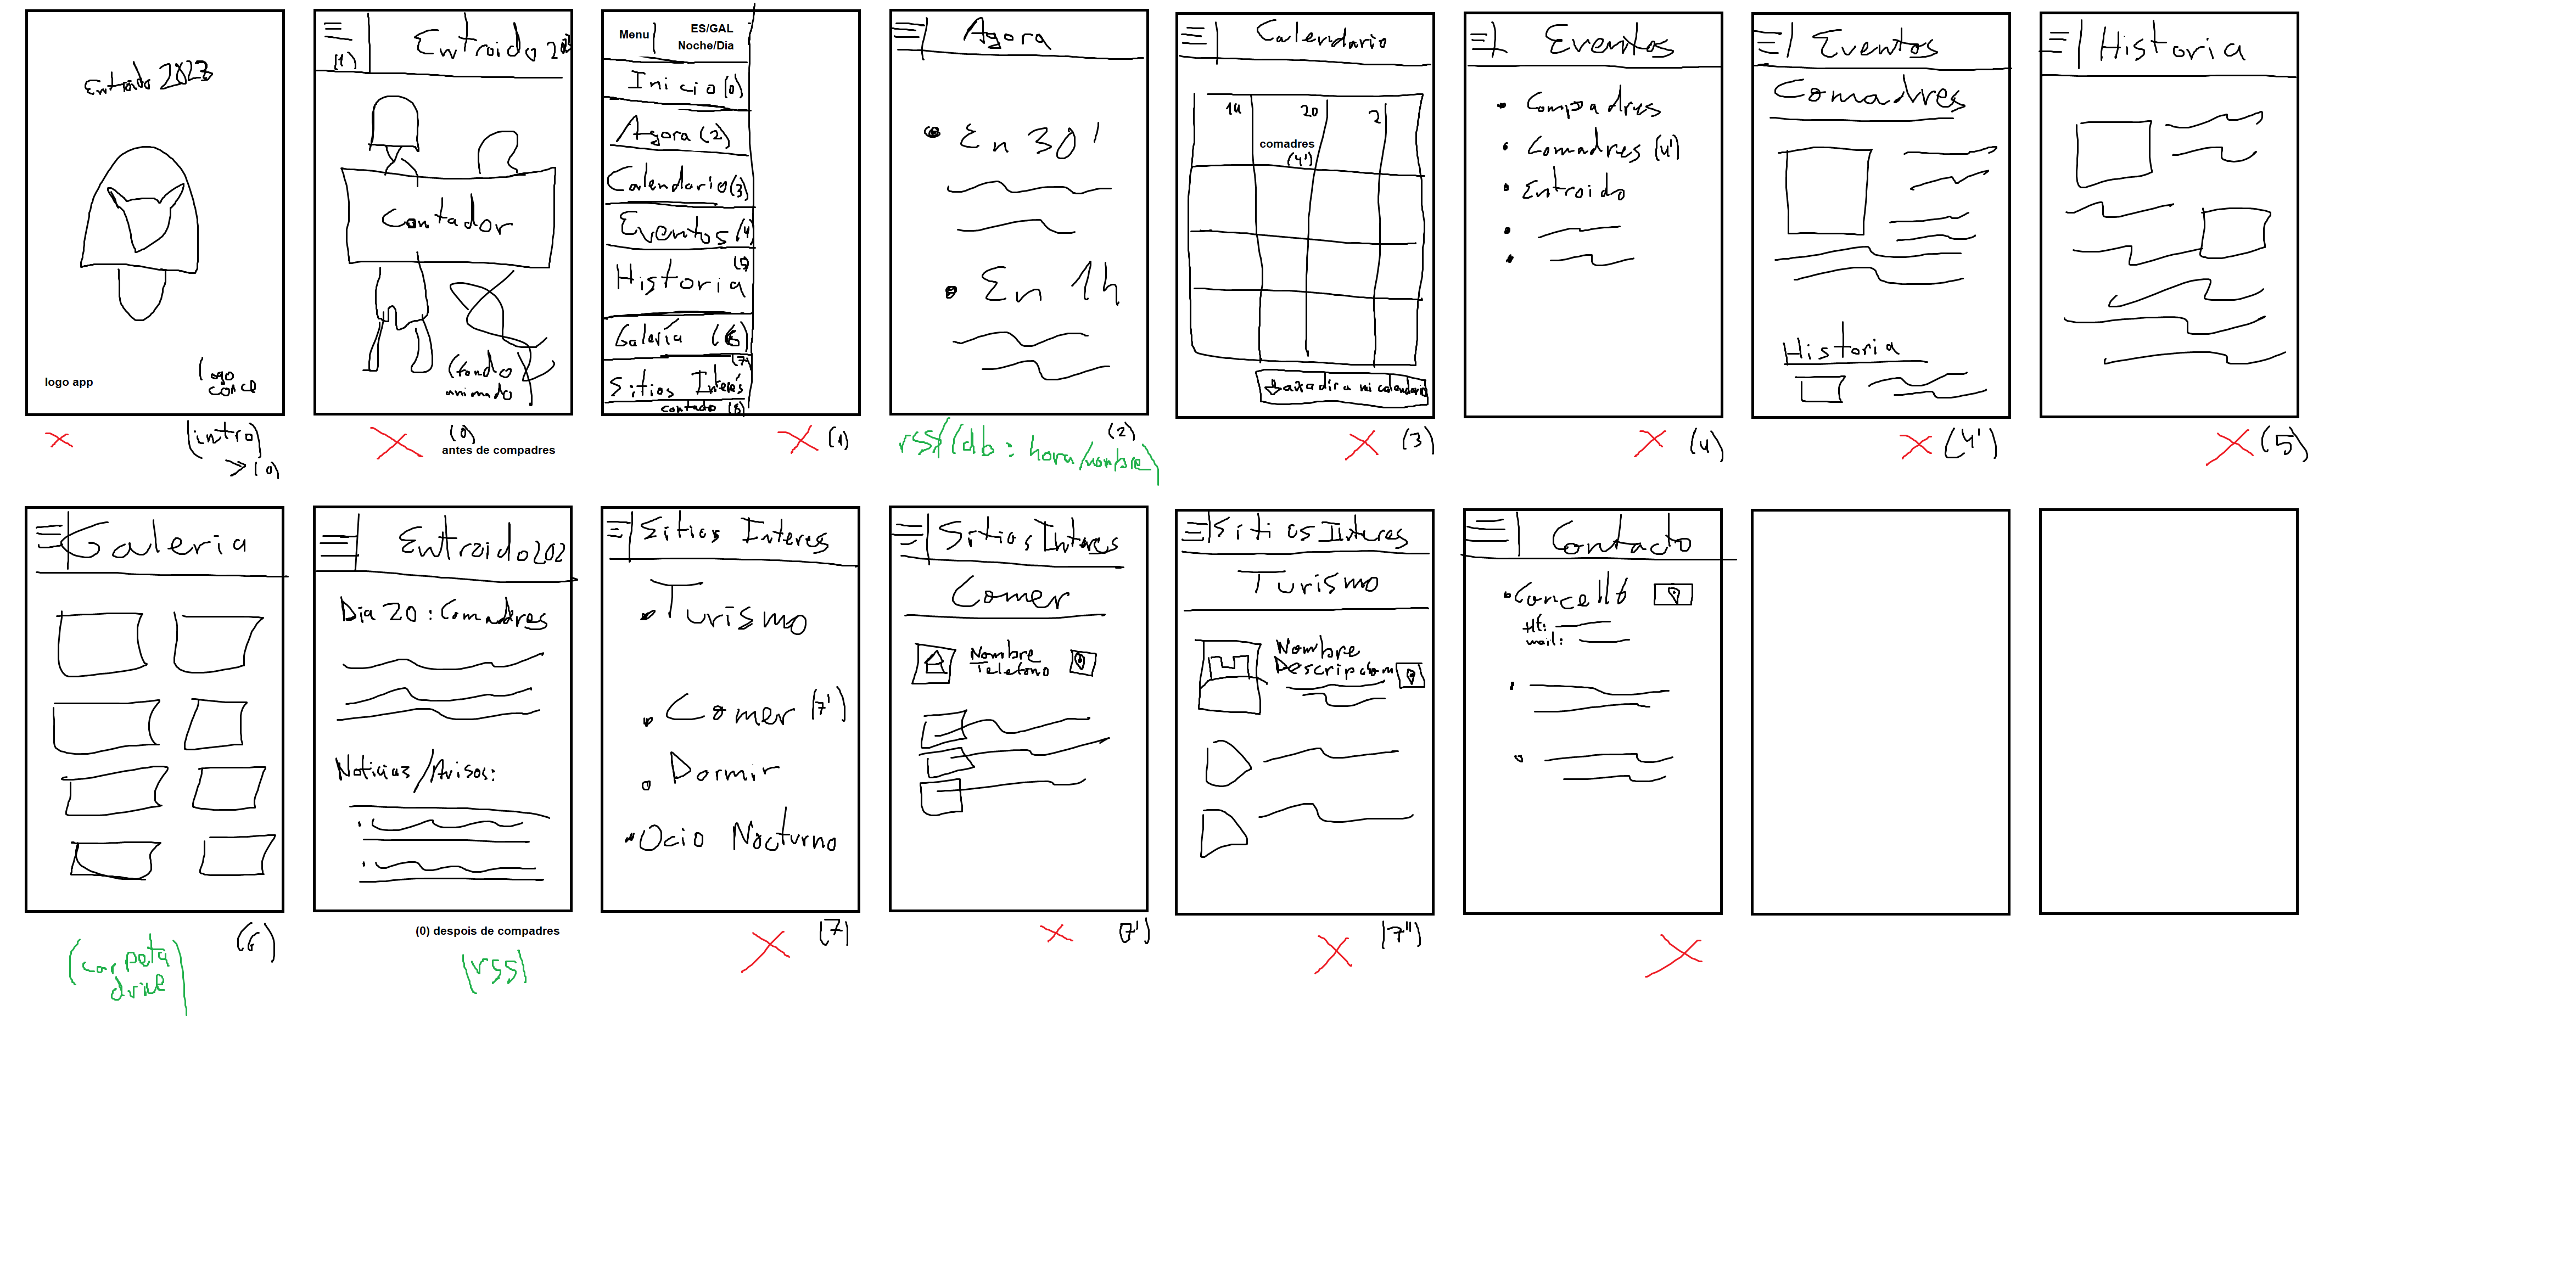 Entroido 2023
logo app
logo
conce
(intro)
> (0)
(1)
Entroido 202
Contador
(fondo
animado)
(0)
antes de compadres
Menu
ES/GAL
Noche/Dia
Inicio (0)
Agora (2)
Calendario (3)
Eventos (4)
(5)
Historia
Galería (6)
(7)
Sitios Interés
contacto (8)
(1)
Agora
En 30'
En 1h
(2)
rss/(db: hora/nombre)
Calendario
14 20 2
comadres
(4')
añadir a mi calendario
(3)
Eventos
• Compadres
• Comadres (4')
• Entroido
(4)
Eventos
Comadres
Historia
(4')
Historia
(5)
Galeria
(6)
(carpeta
drive)
Entroido 202
Dia 20: Comadres
Noticias/Avisos:
(0) despois de compadres
(rss)
Sitios Interes
• Turismo
• Comer (7')
• Dormir
• Ocio Nocturno
(7)
Sitios Interes
Comer
Nombre
Telefono
(7')
Sitios Interes
Turismo
Nombre
(7'')
Contacto
• Concello
tlf:
mail: